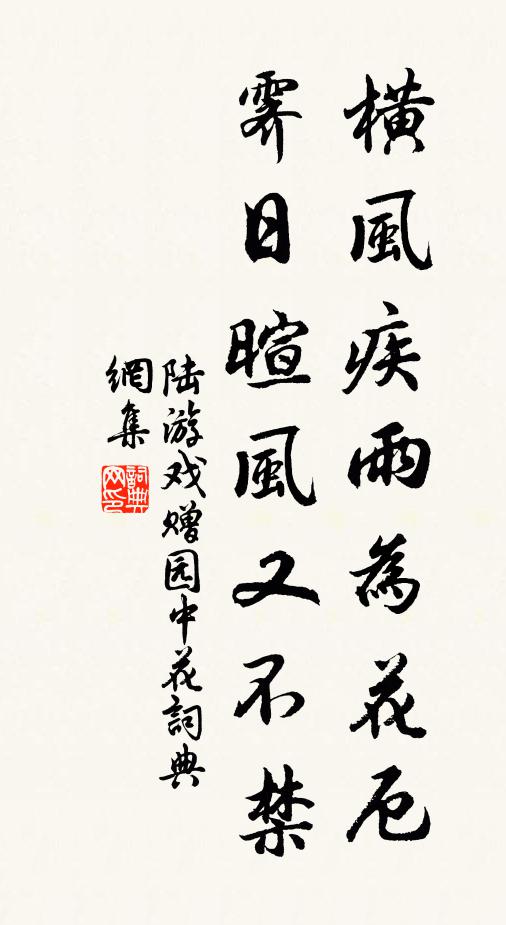 橫風疾雨為花厄
霽日暄風又不禁
陆游戏赠园中花詞典
網集
詞典網印